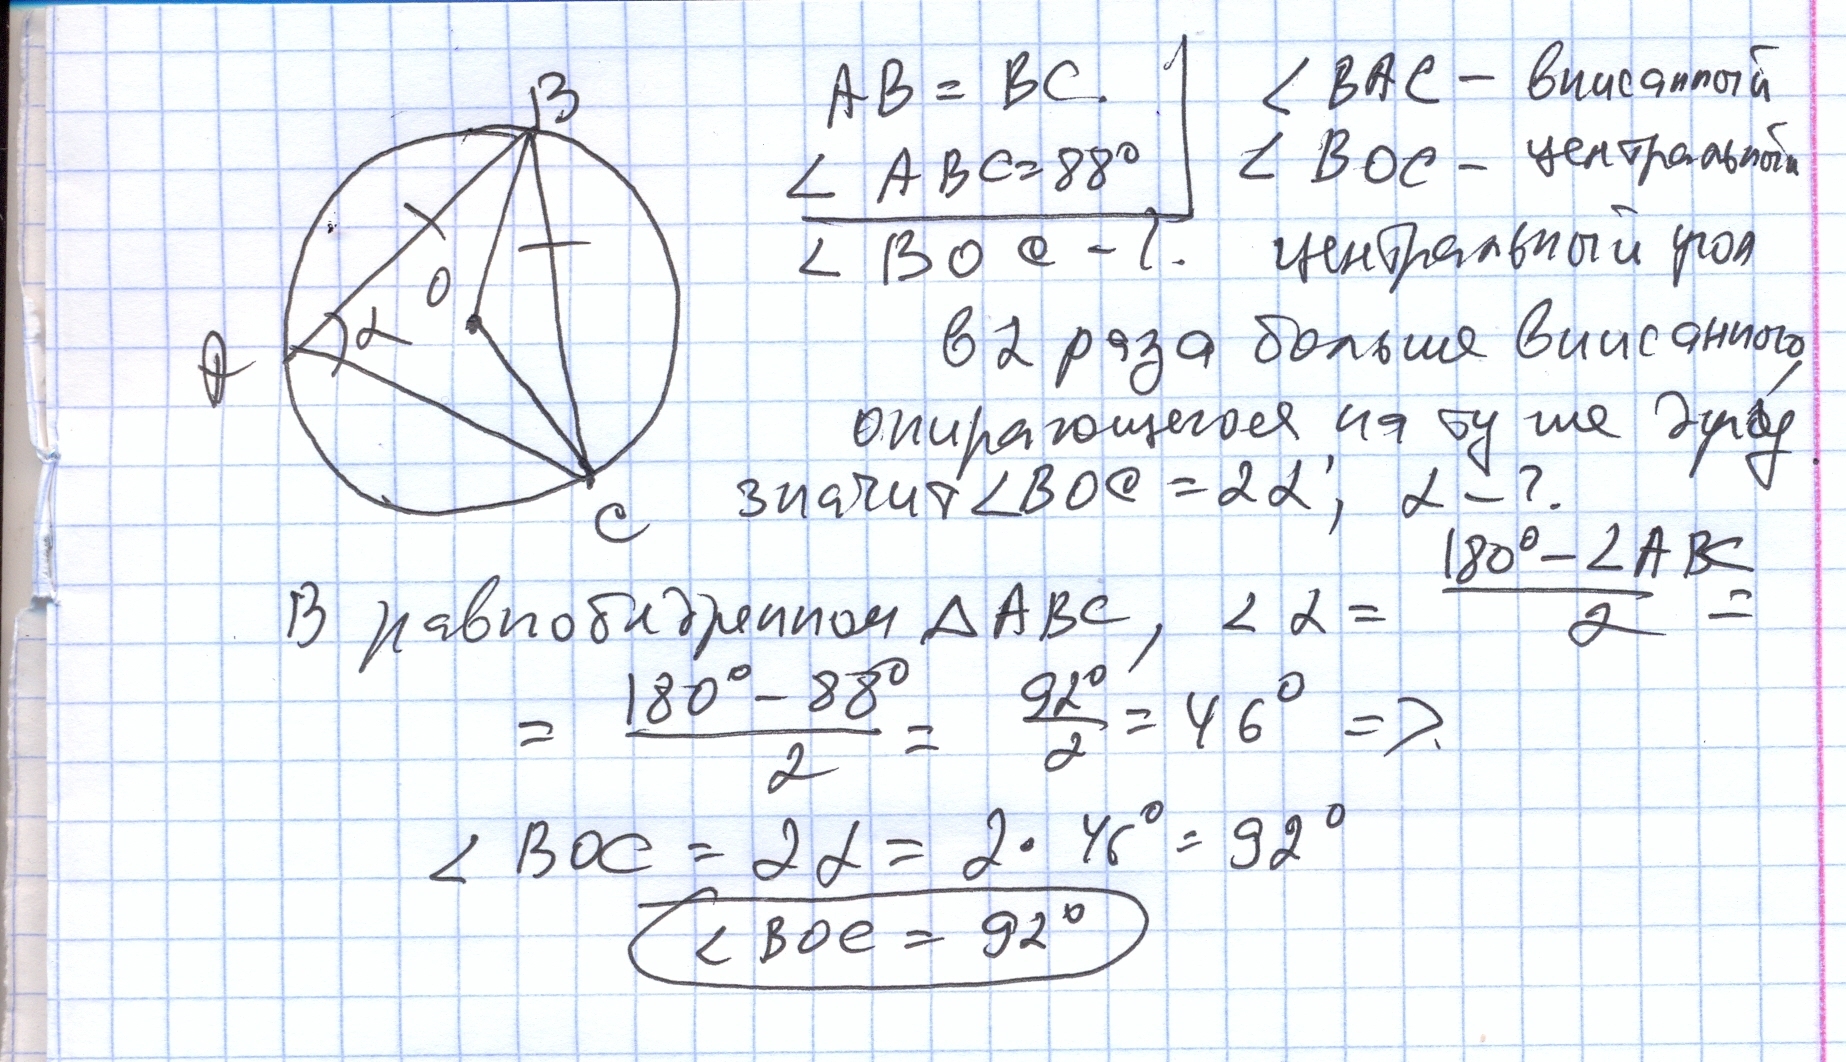 B
O
α
A
C
AB = BC.
∠ ABC=88°
∠ BOC - ?.
∠ BAC – вписанный
∠ BOC – центральный
центральный угол
в 2 раза больше вписанного,
опирающегося на ту же дугу.
значит ∠BOC = 2α; α – ?.
В равнобедренном △ABC, ∠ α = (180° – ∠ABC)/2 =
= (180° – 88°)/2 = 92°/2 = 46° =>.
∠ BOC = 2α = 2 · 46° = 92°
∠ BOC = 92°